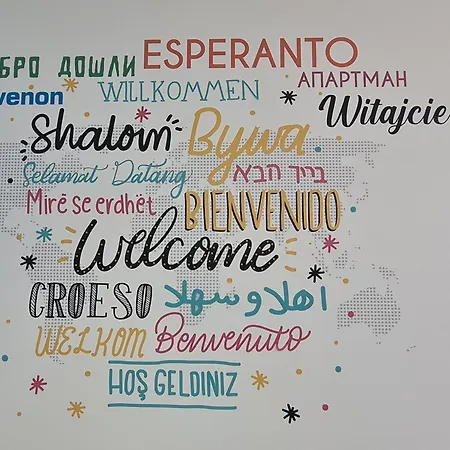 БРО ДОШЛИ
ESPERANTO
venon
WILLKOMMEN
АПАРТМАН
Witajcie
Shalom
Bywa
Selamat Datang
בייך חבא
Mirë se erdhët
BIENVENIDO
Welcome
CROESO
اهلا وسهلا
WELKOM
Benvenuto
HOŞ GELDINIZ